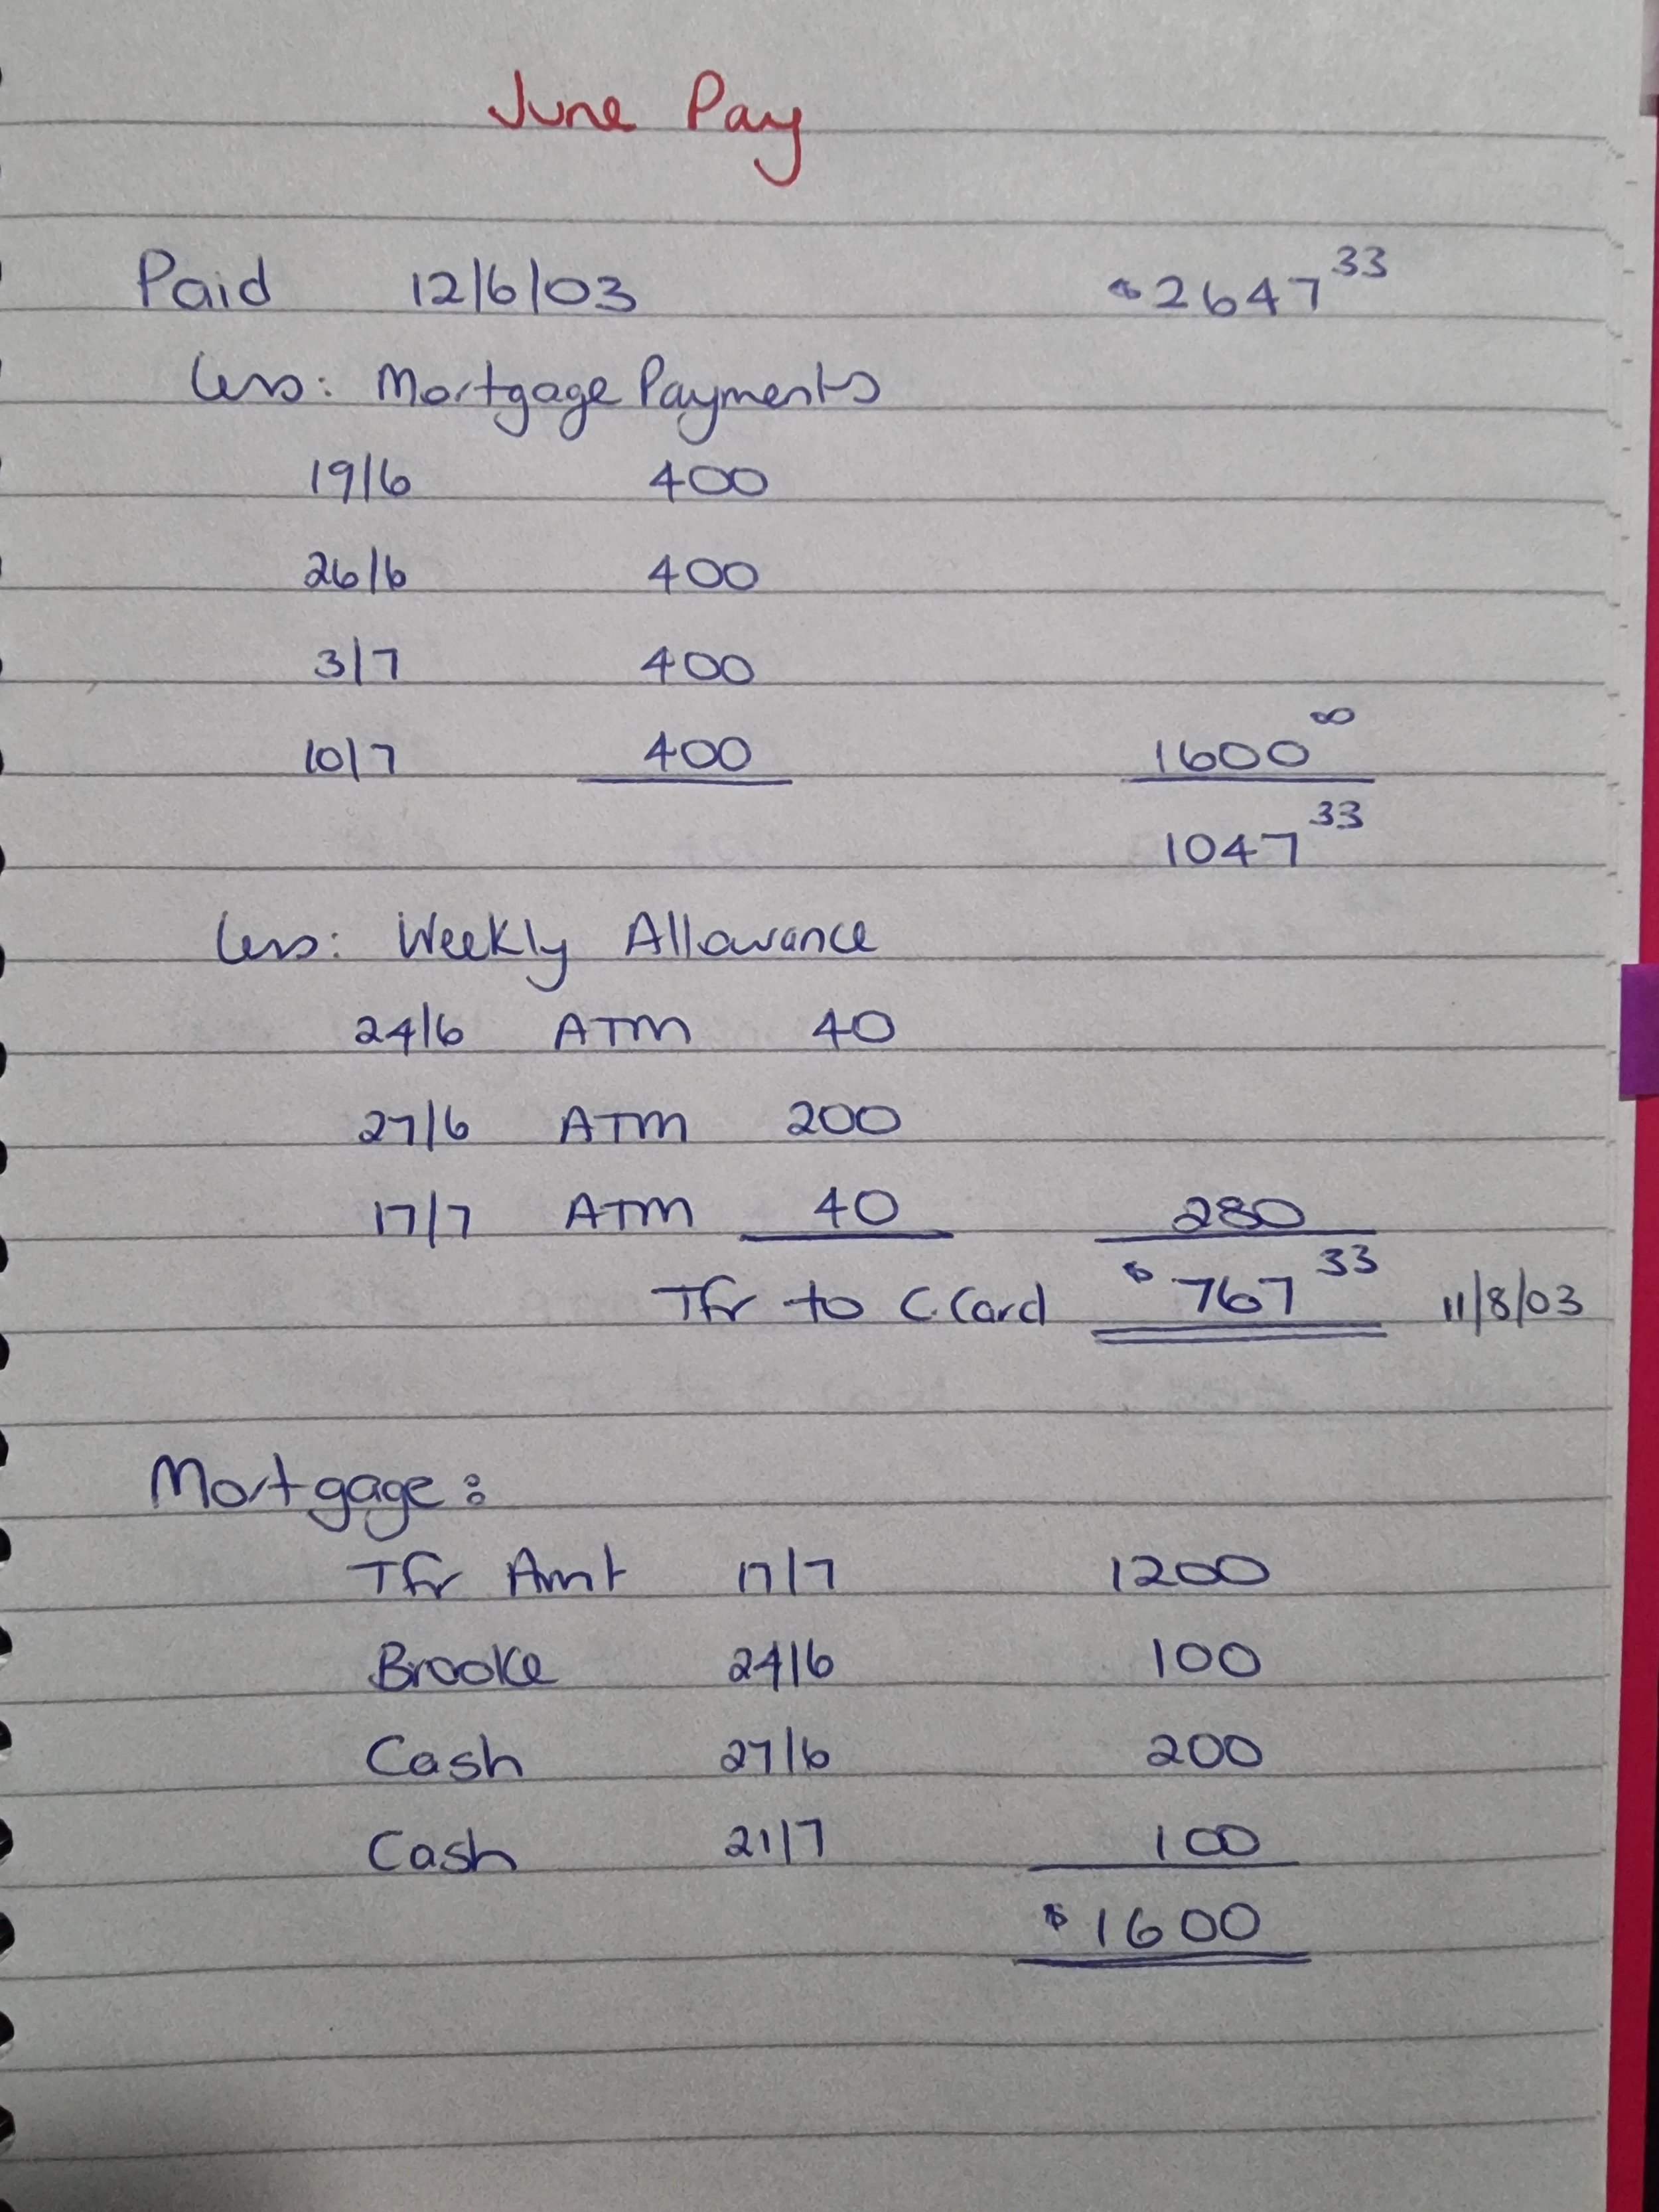 June Pay
Paid 12/6/03 $2647 33
Less: Mortgage Payments
19/6 400
26/6 400
3/7 400
10/7 400 1600 00
1047 33
Less: Weekly Allowance
24/6 ATM 40
27/6 ATM 200
17/7 ATM 40 280
Tfr to C.Card $767 33 11/8/03
Mortgage:
Tfr Amt 17/7 1200
Brooke 24/6 100
Cash 27/6 200
Cash 21/7 100
$1600